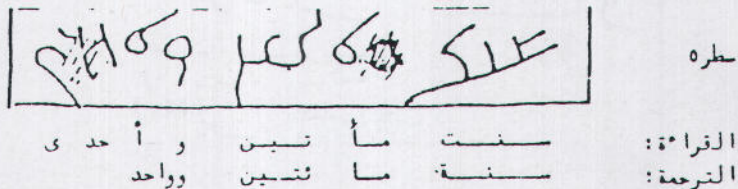 سطر ٥
القراءة: سنت مأ تين و أ حد ى
الترجمة: سنة ما ئتين وواحد